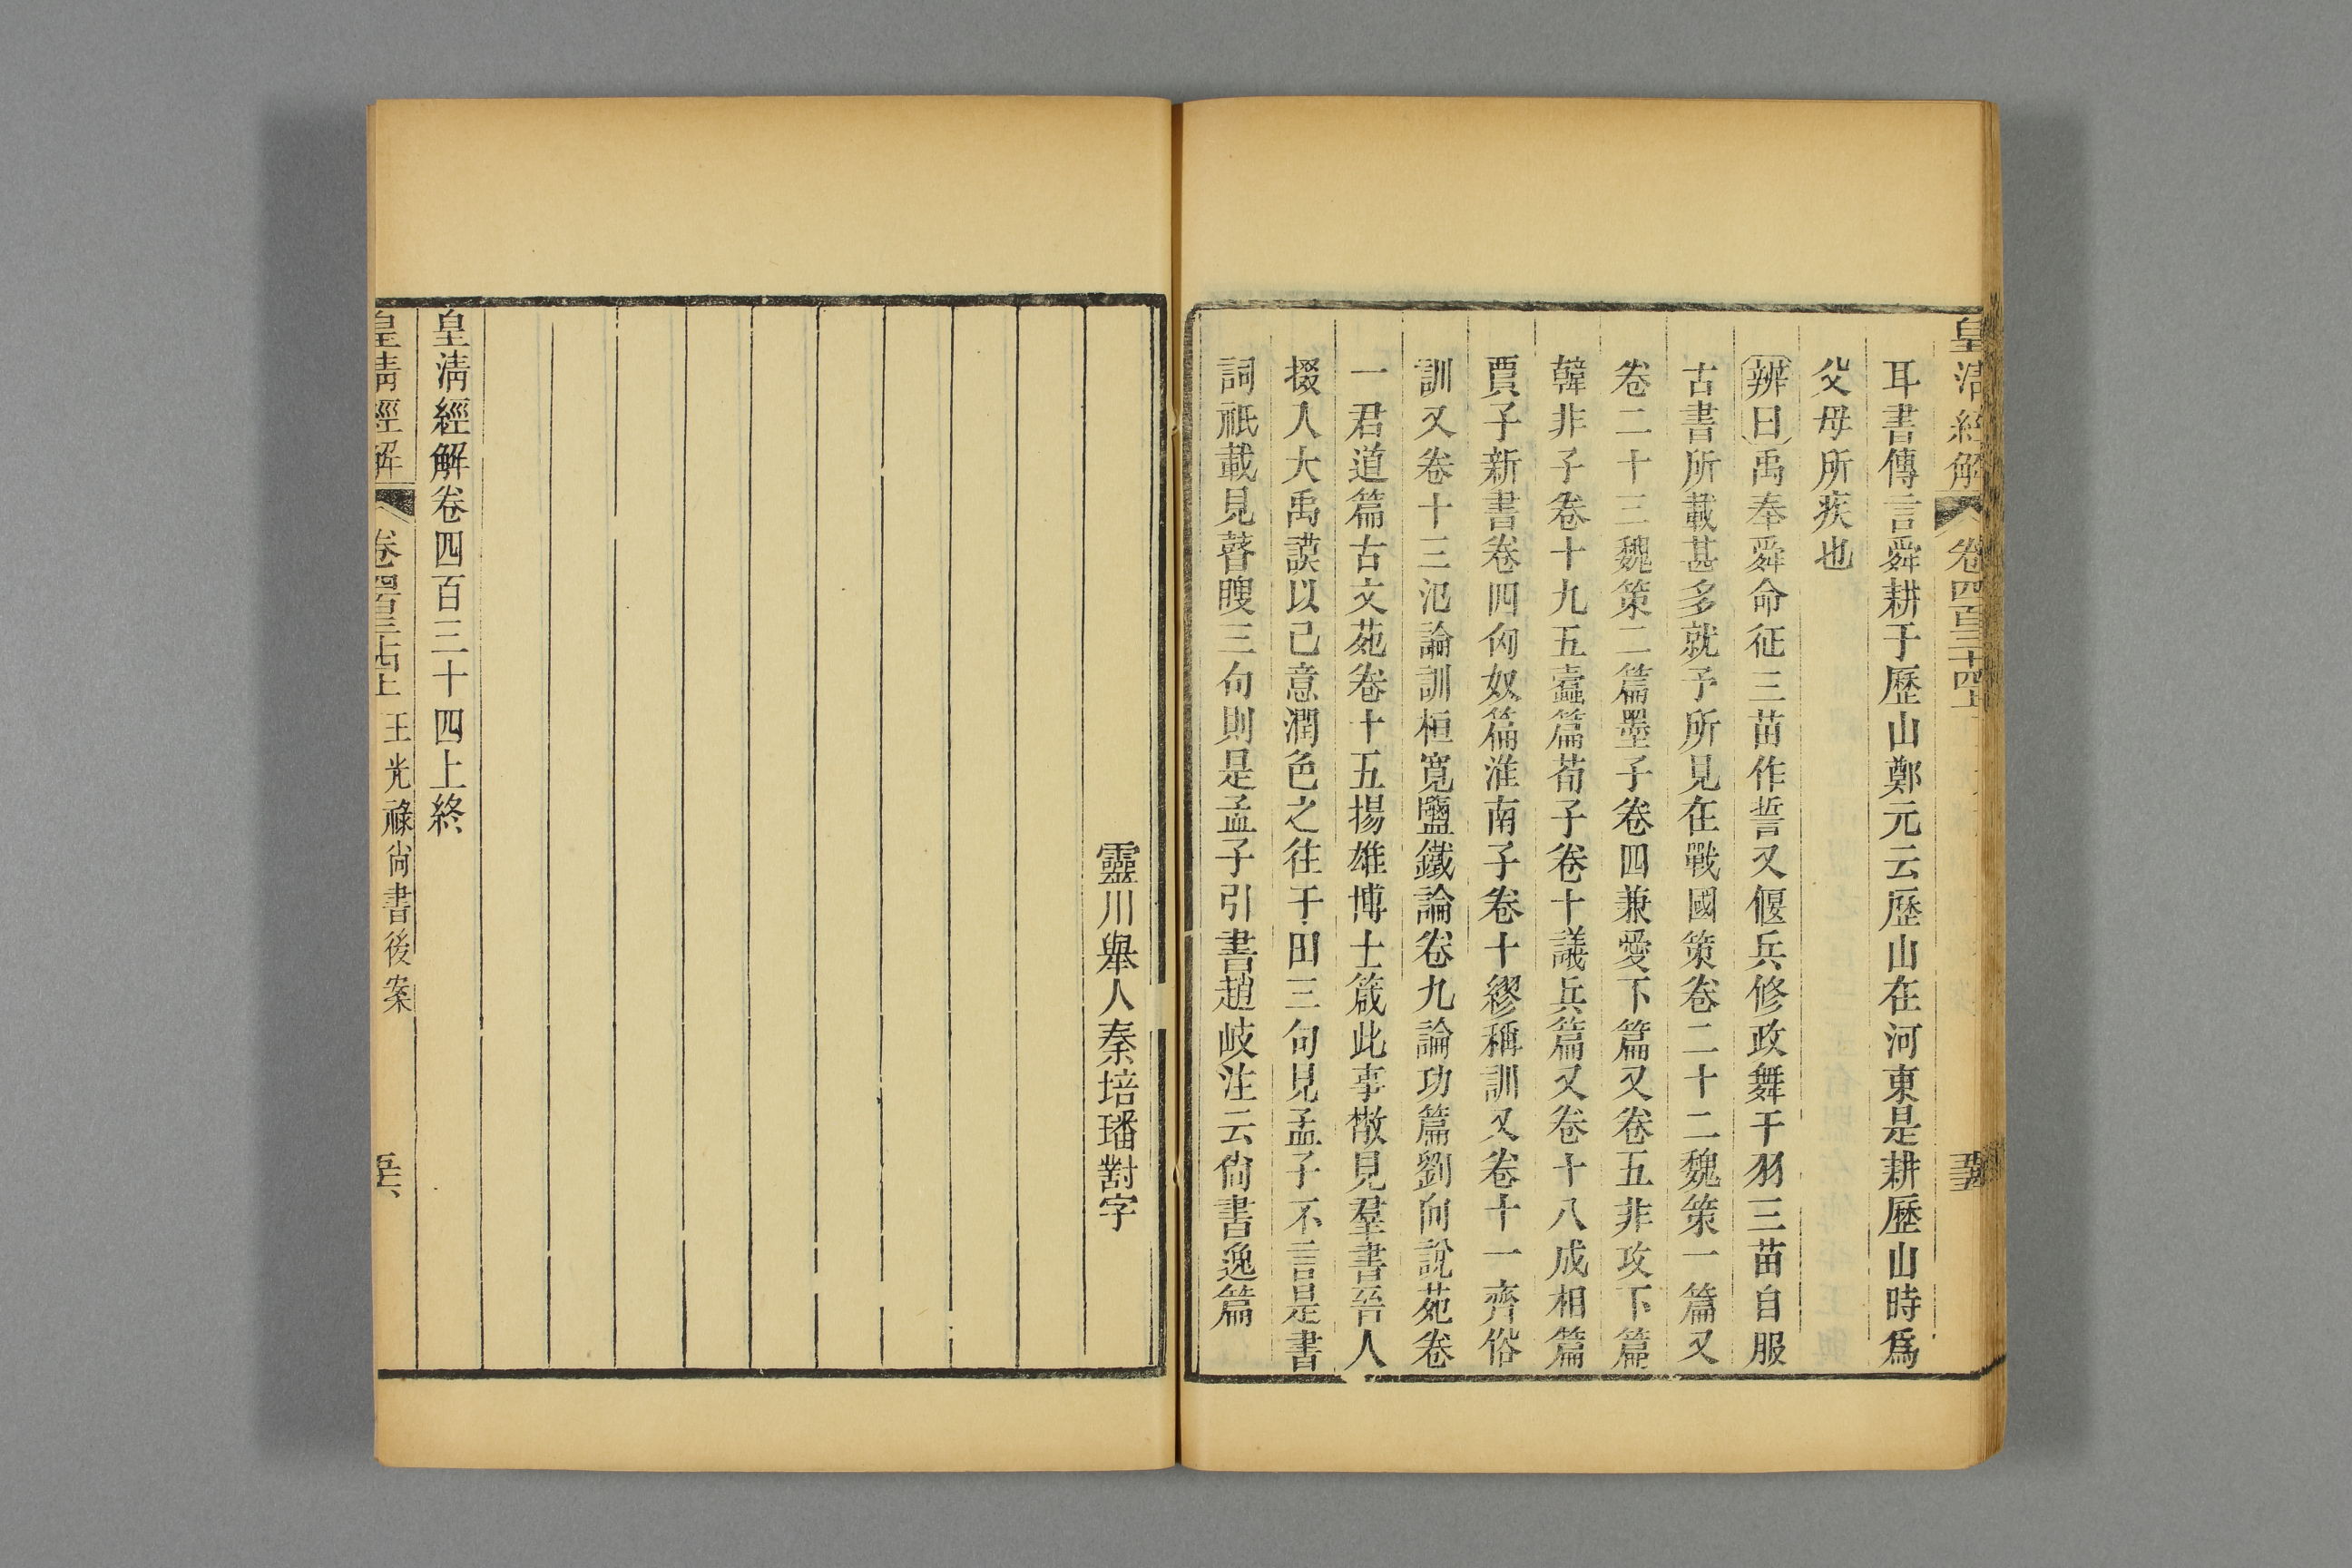 皇清經解 卷四百三十四上
耳書傳言舜耕于歷山鄭元云歷山在河東是耕歷山時爲
父母所疾也
辨曰禹奉舜命征三苗作誓又偃兵修政舞干羽三苗自服
古書所載甚多就予所見在戰國策卷二十二魏策一篇又
卷二十三魏策二篇墨子卷四兼愛下篇又卷五非攻下篇
韓非子卷十九五蠹篇荀子卷十議兵篇又卷十八成相篇
賈子新書卷四匈奴篇淮南子卷十繆稱訓又卷十一齊俗
訓又卷十三氾論訓桓寬鹽鐵論卷九論功篇劉向說苑卷
一君道篇古文苑卷十五揚雄博士箴此事散見羣書晉人
掇入大禹謨以己意潤色之往于田三句見孟子不言是書
詞祇載見瞽瞍三句則是孟子引書趙岐注云尙書逸篇
靈川舉人秦培璠對字
皇淸經解卷四百三十四上終
皇清經解 卷四百三十四上 王光祿尙書後案